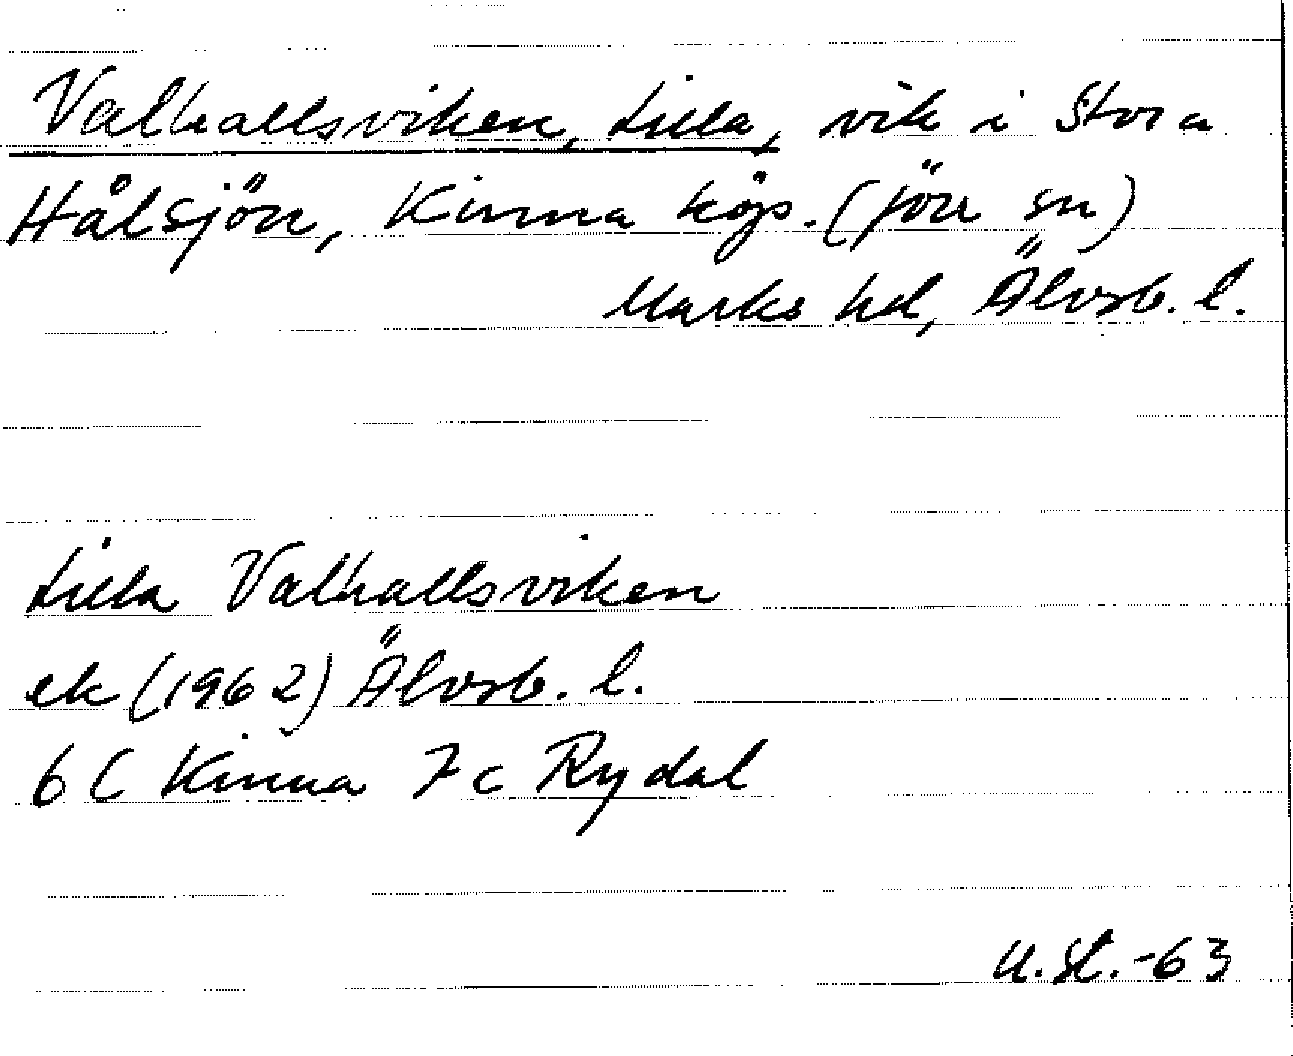 Valhallsviken, Lilla, vik i Stora
Hålsjön, Kinna köp. (förr sn)
Marks hd, Älvsb. l.
Lilla Valhallsviken
ek (1962) Älvsb. l.
6 C Kinna 7 c Rydal
U. St. -63